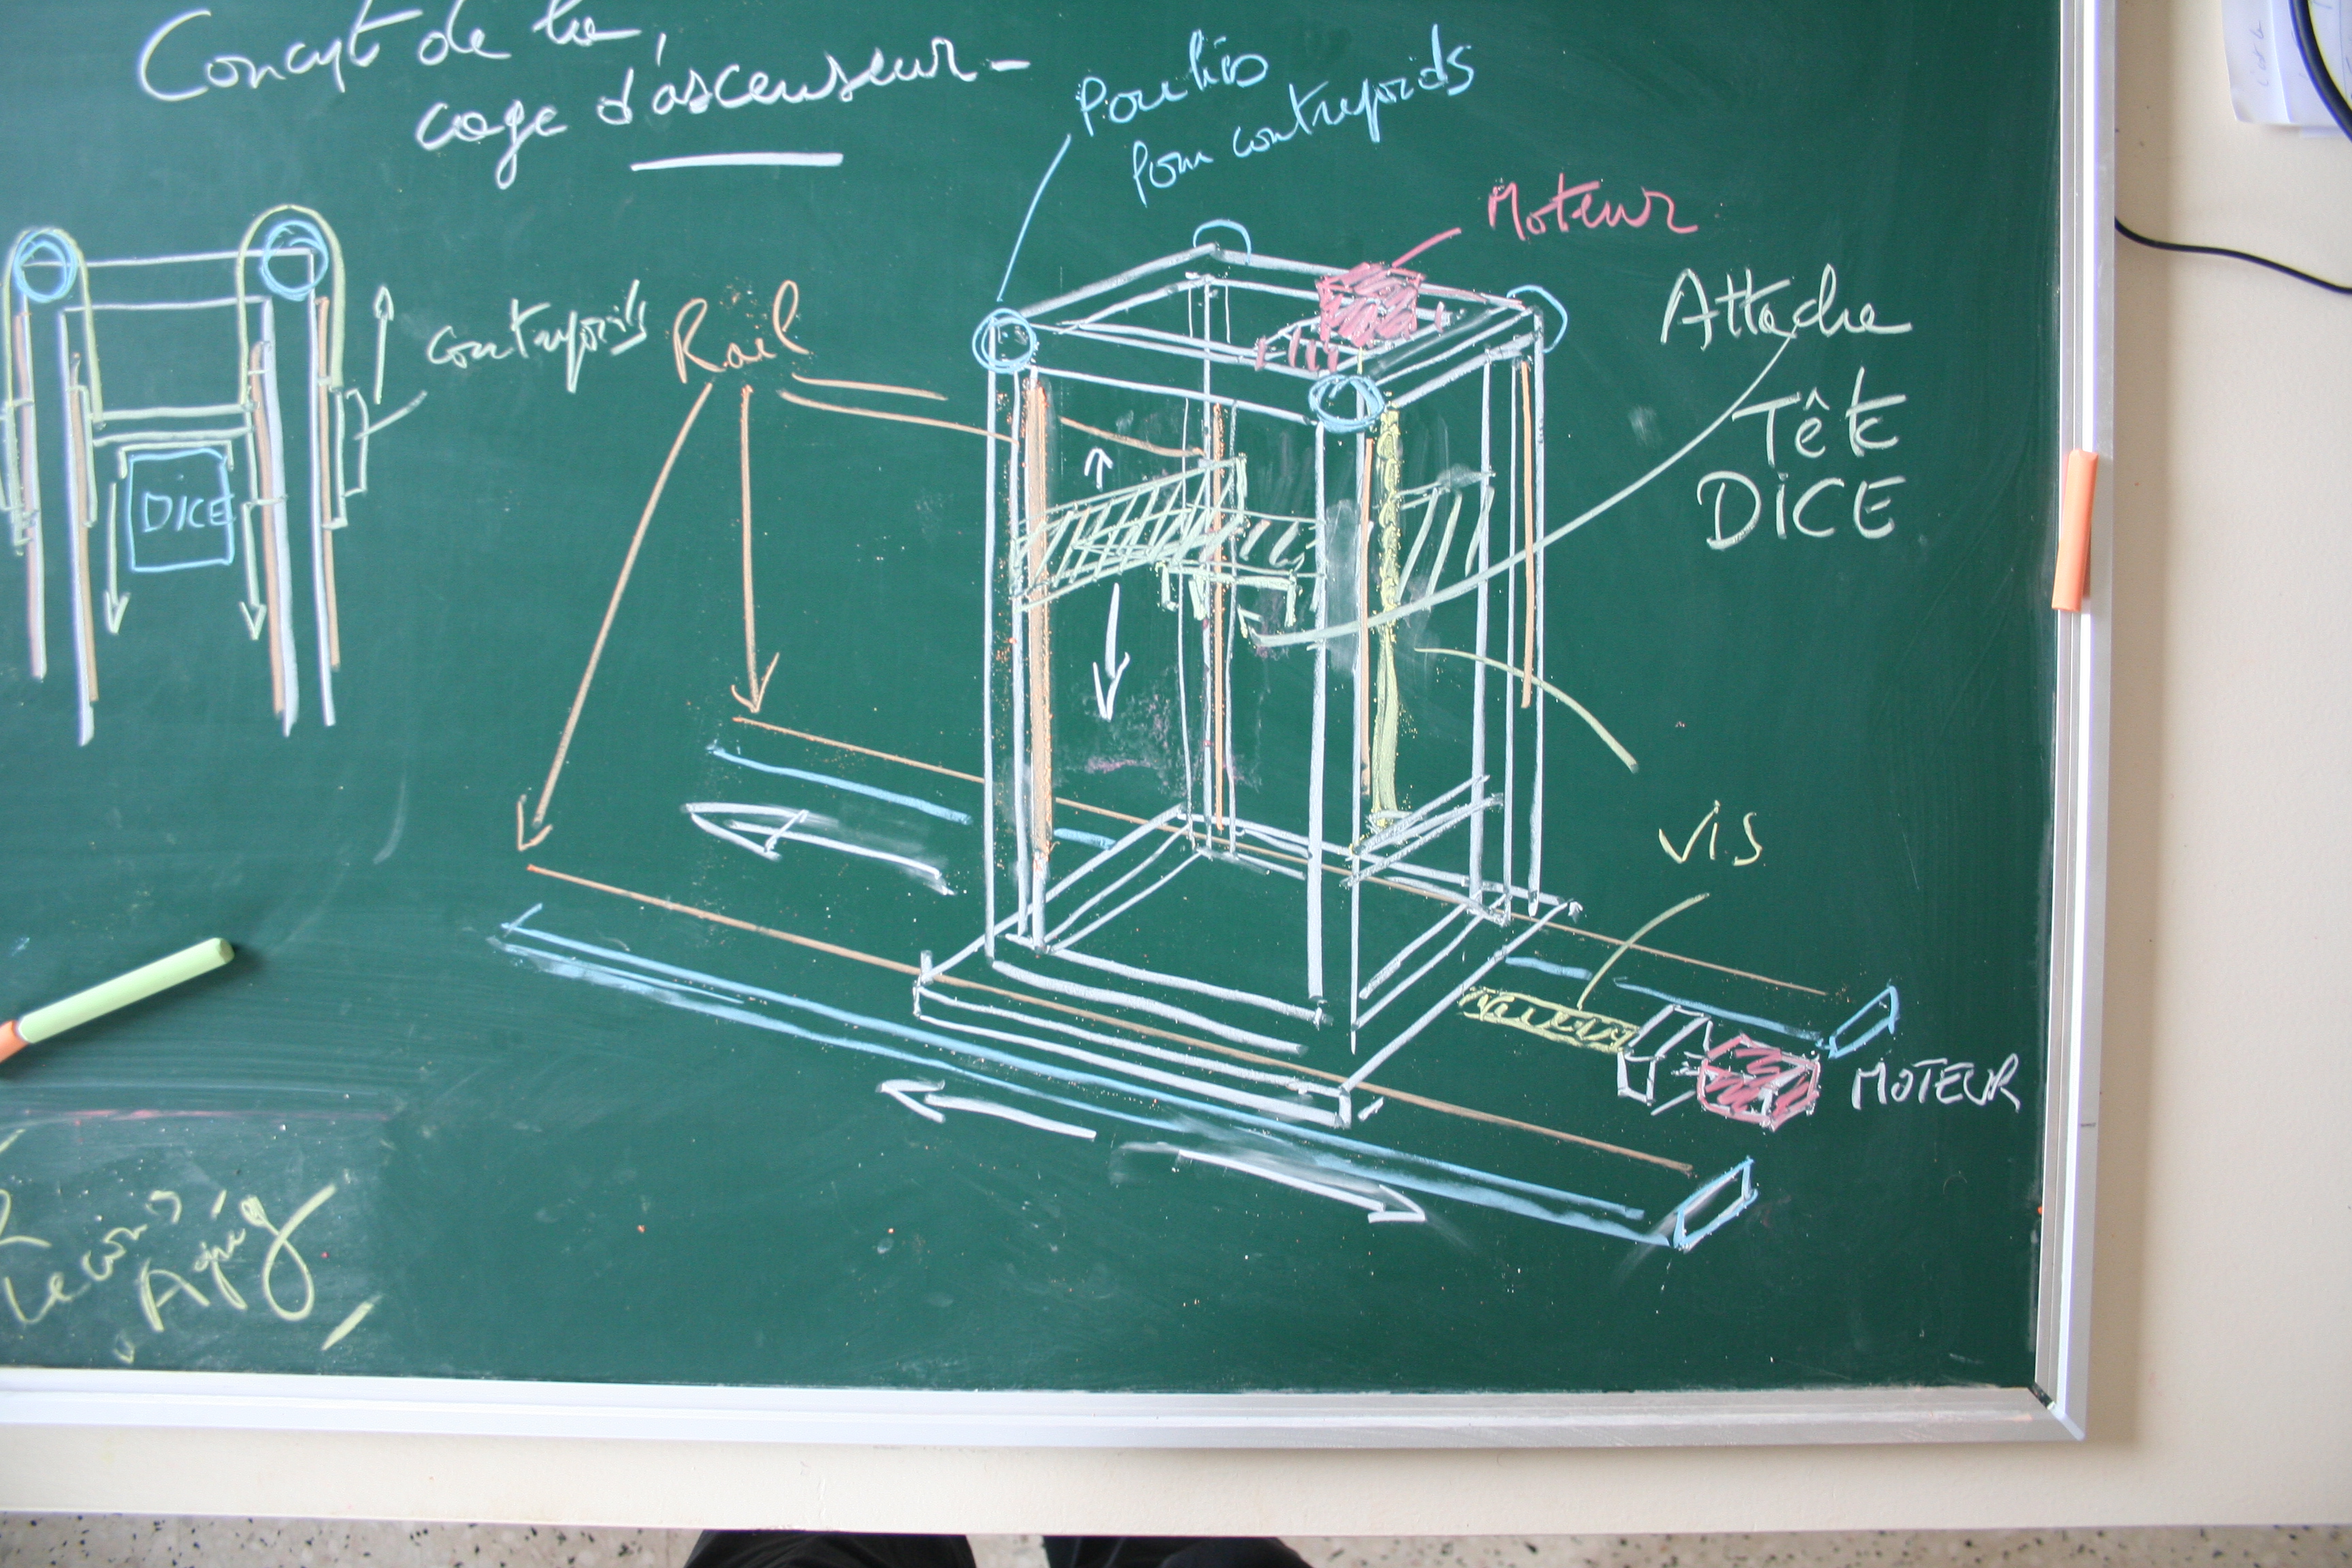 Concept de la
cage d'ascenseur
Poulies
Pour contrepoids
Moteur
contrepoids
Rail
Attache
Tête
DICE
DICE
Vis
MOTEUR